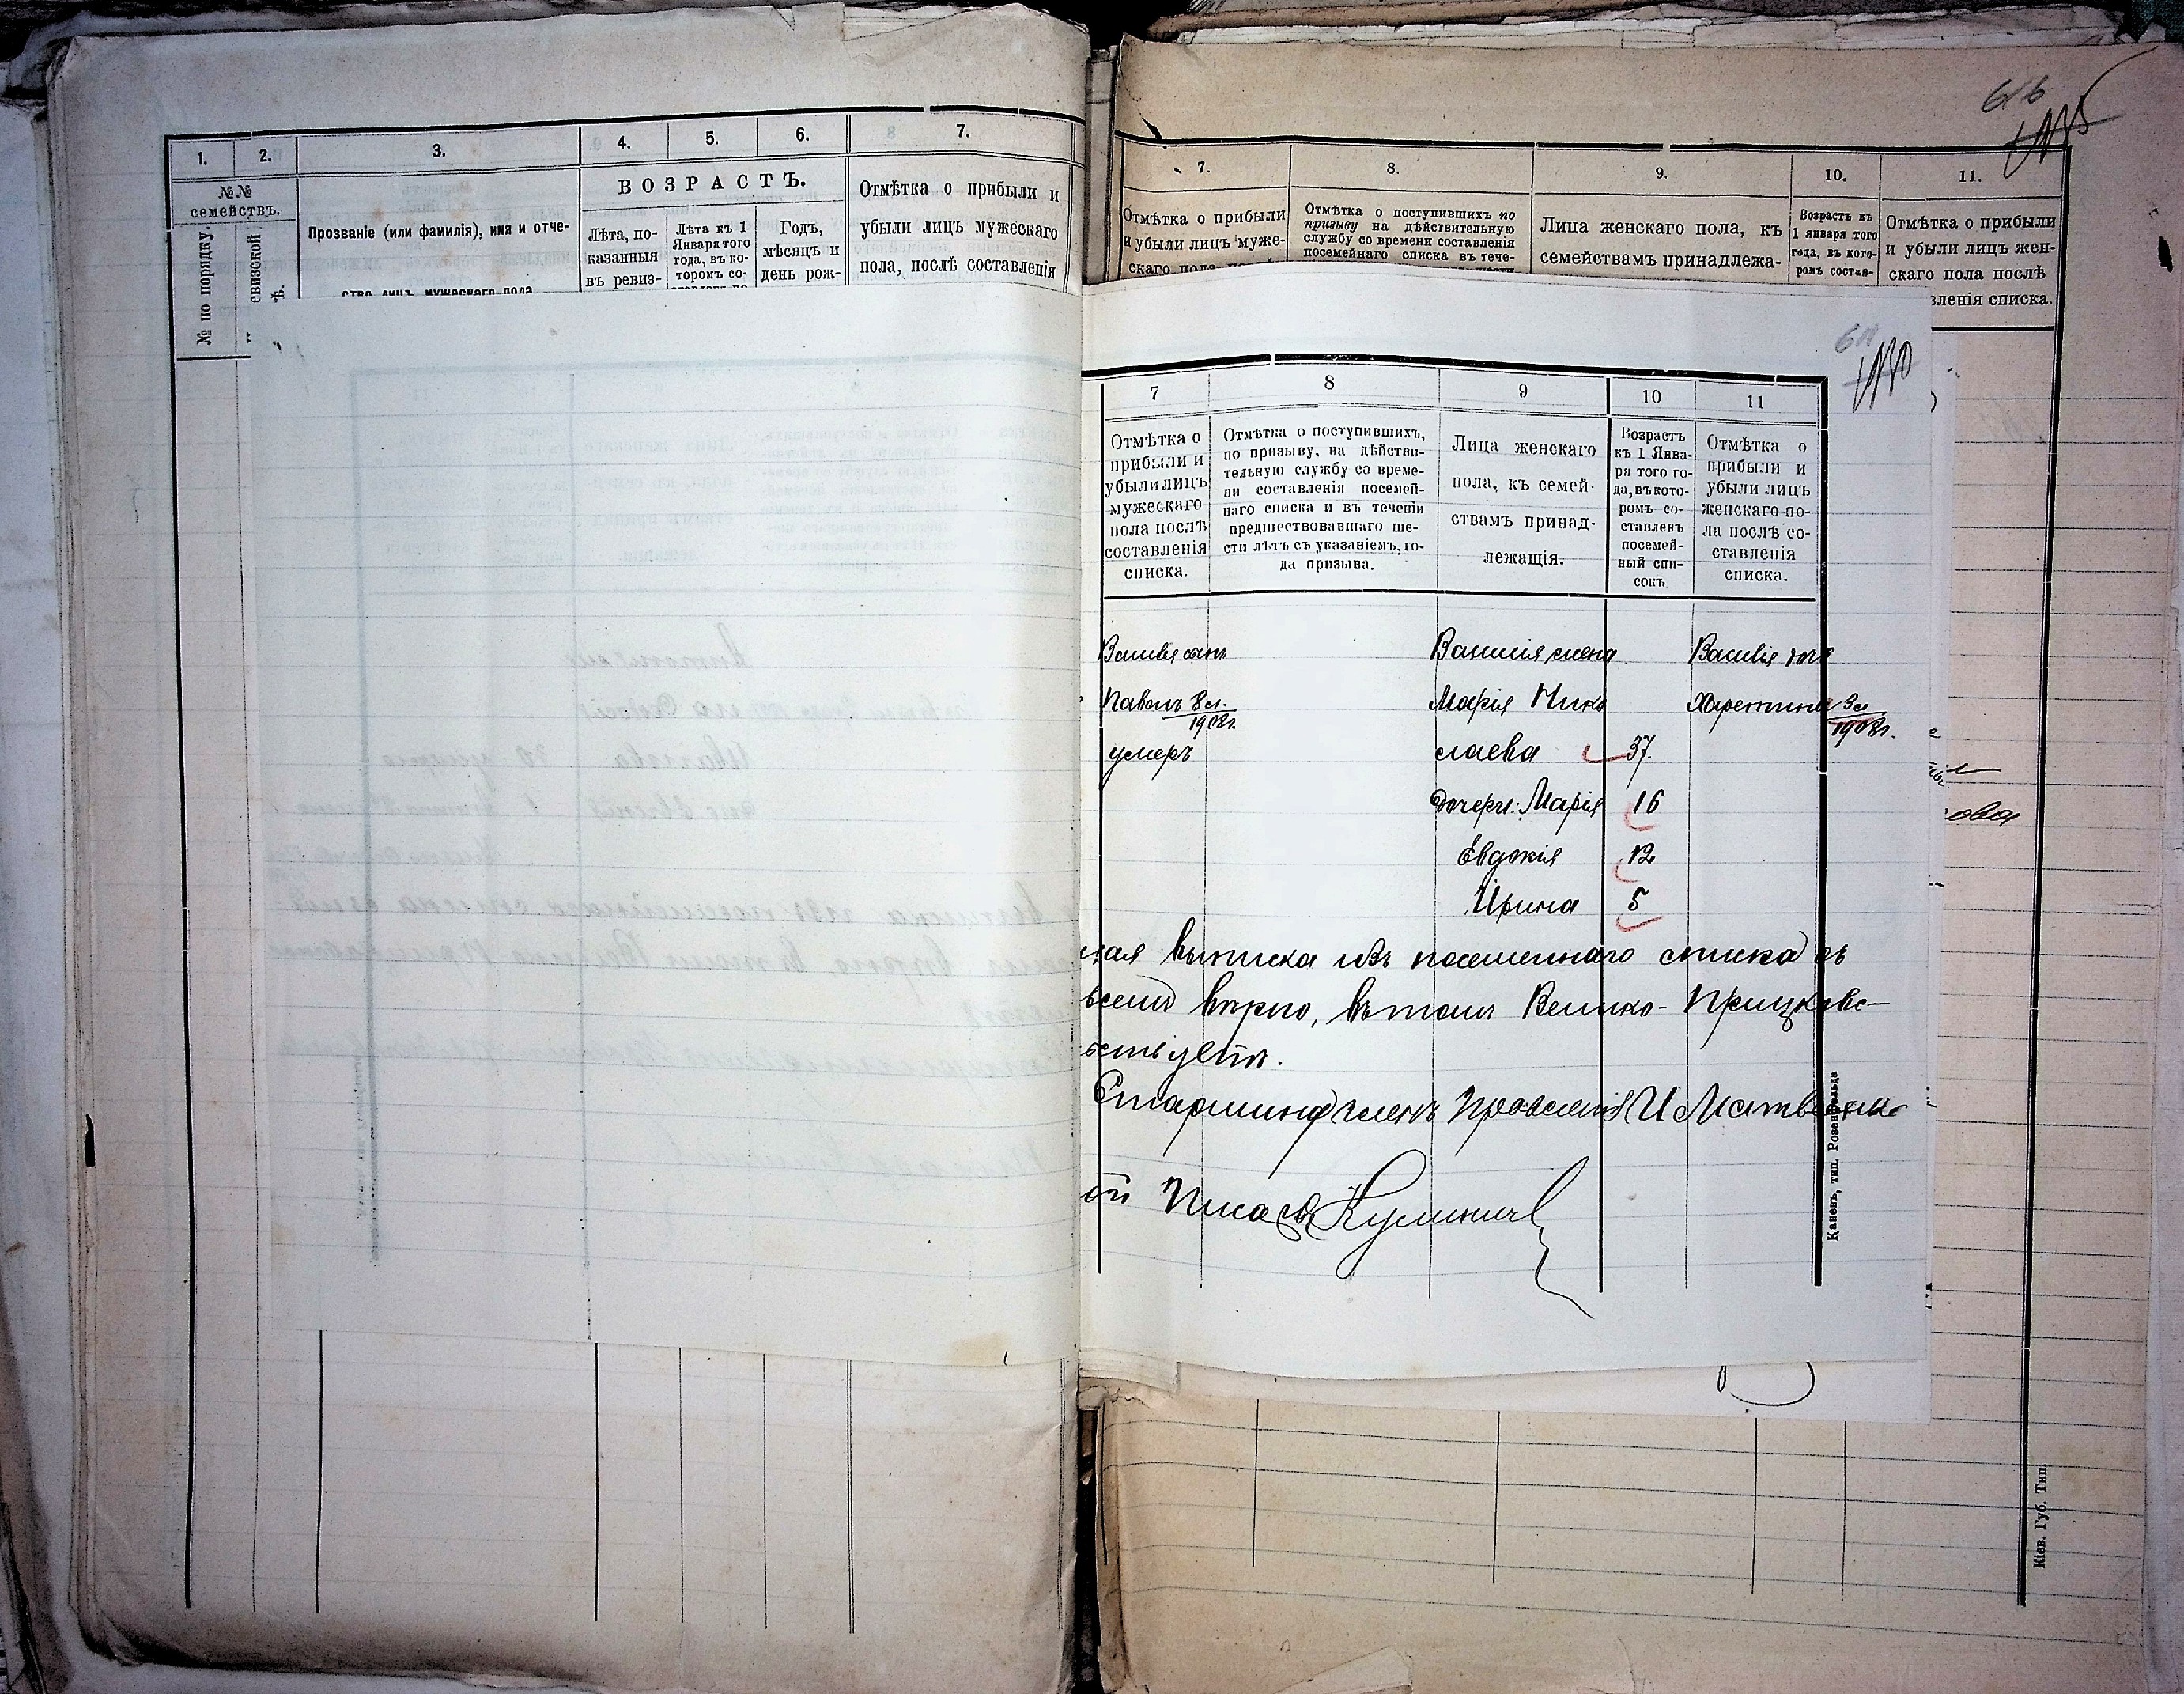 1.
2.
3.
4.
5.
6.
7.
№№
семействъ.
№ по порядку.
Прозваніе (или фамилія), имя и отче-
ство лицъ мужескаго пола
ВОЗРАСТЪ.
Лѣта, по-
казанныя
въ ревиз-
Лѣта къ 1
Января того
года, въ ко-
торомъ со-
Годъ,
мѣсяцъ и
день рож-
Отмѣтка о прибыли и
убыли лицъ мужескаго
пола, послѣ составленія
7.
8.
9.
10.
11.
Отмѣтка о прибыли
и убыли лицъ муже-
скаго пола
Отмѣтка о поступившихъ по
призыву на дѣйствительную
службу со времени составленія
посемейнаго списка въ тече-
Лица женскаго пола, къ
семействамъ принадлежа-
Возрастъ къ
1 января того
года, въ кото-
ромъ состав-
Отмѣтка о прибыли
и убыли лицъ жен-
скаго пола послѣ
вленія списка.
7
8
9
10
11
Отмѣтка о
прибыли и
убыли лицъ
мужескаго
пола послѣ
составленія
списка.
Отмѣтка о поступившихъ,
по призыву, на дѣйстви-
тельную службу со време-
ни составленія посемей-
наго списка и въ теченіи
предшествовавшаго ше-
сти лѣтъ съ указаніемъ, го-
да призыва.
Лица женскаго
пола, къ семей-
ствамъ принад-
лежащія.
Возрастъ
къ 1 Янва-
ря того го-
да, въ кото-
ромъ со-
ставленъ
посемей-
ный спи-
сокъ
Отмѣтка о
прибыли и
убыли лицъ
женскаго по-
ла послѣ со-
ставленія
списка.
Василія сынъ
Павелъ
1908г.
умеръ
Василія жена
Марія Нико
лаева 37.
дочери: Марія 16
Евдокія 12
Ирина 5
Василія дочь
Харетина
1908г.
выписка изъ посемейнаго списка съ
вѣрно, въ томъ Велико-Прицковс-
ствуетъ.
Старшина членъ Правленія И Матвѣенко
Писарь Кулиничъ
Каневъ, тип. Розенфельда
Кіев. Губ. Тип.